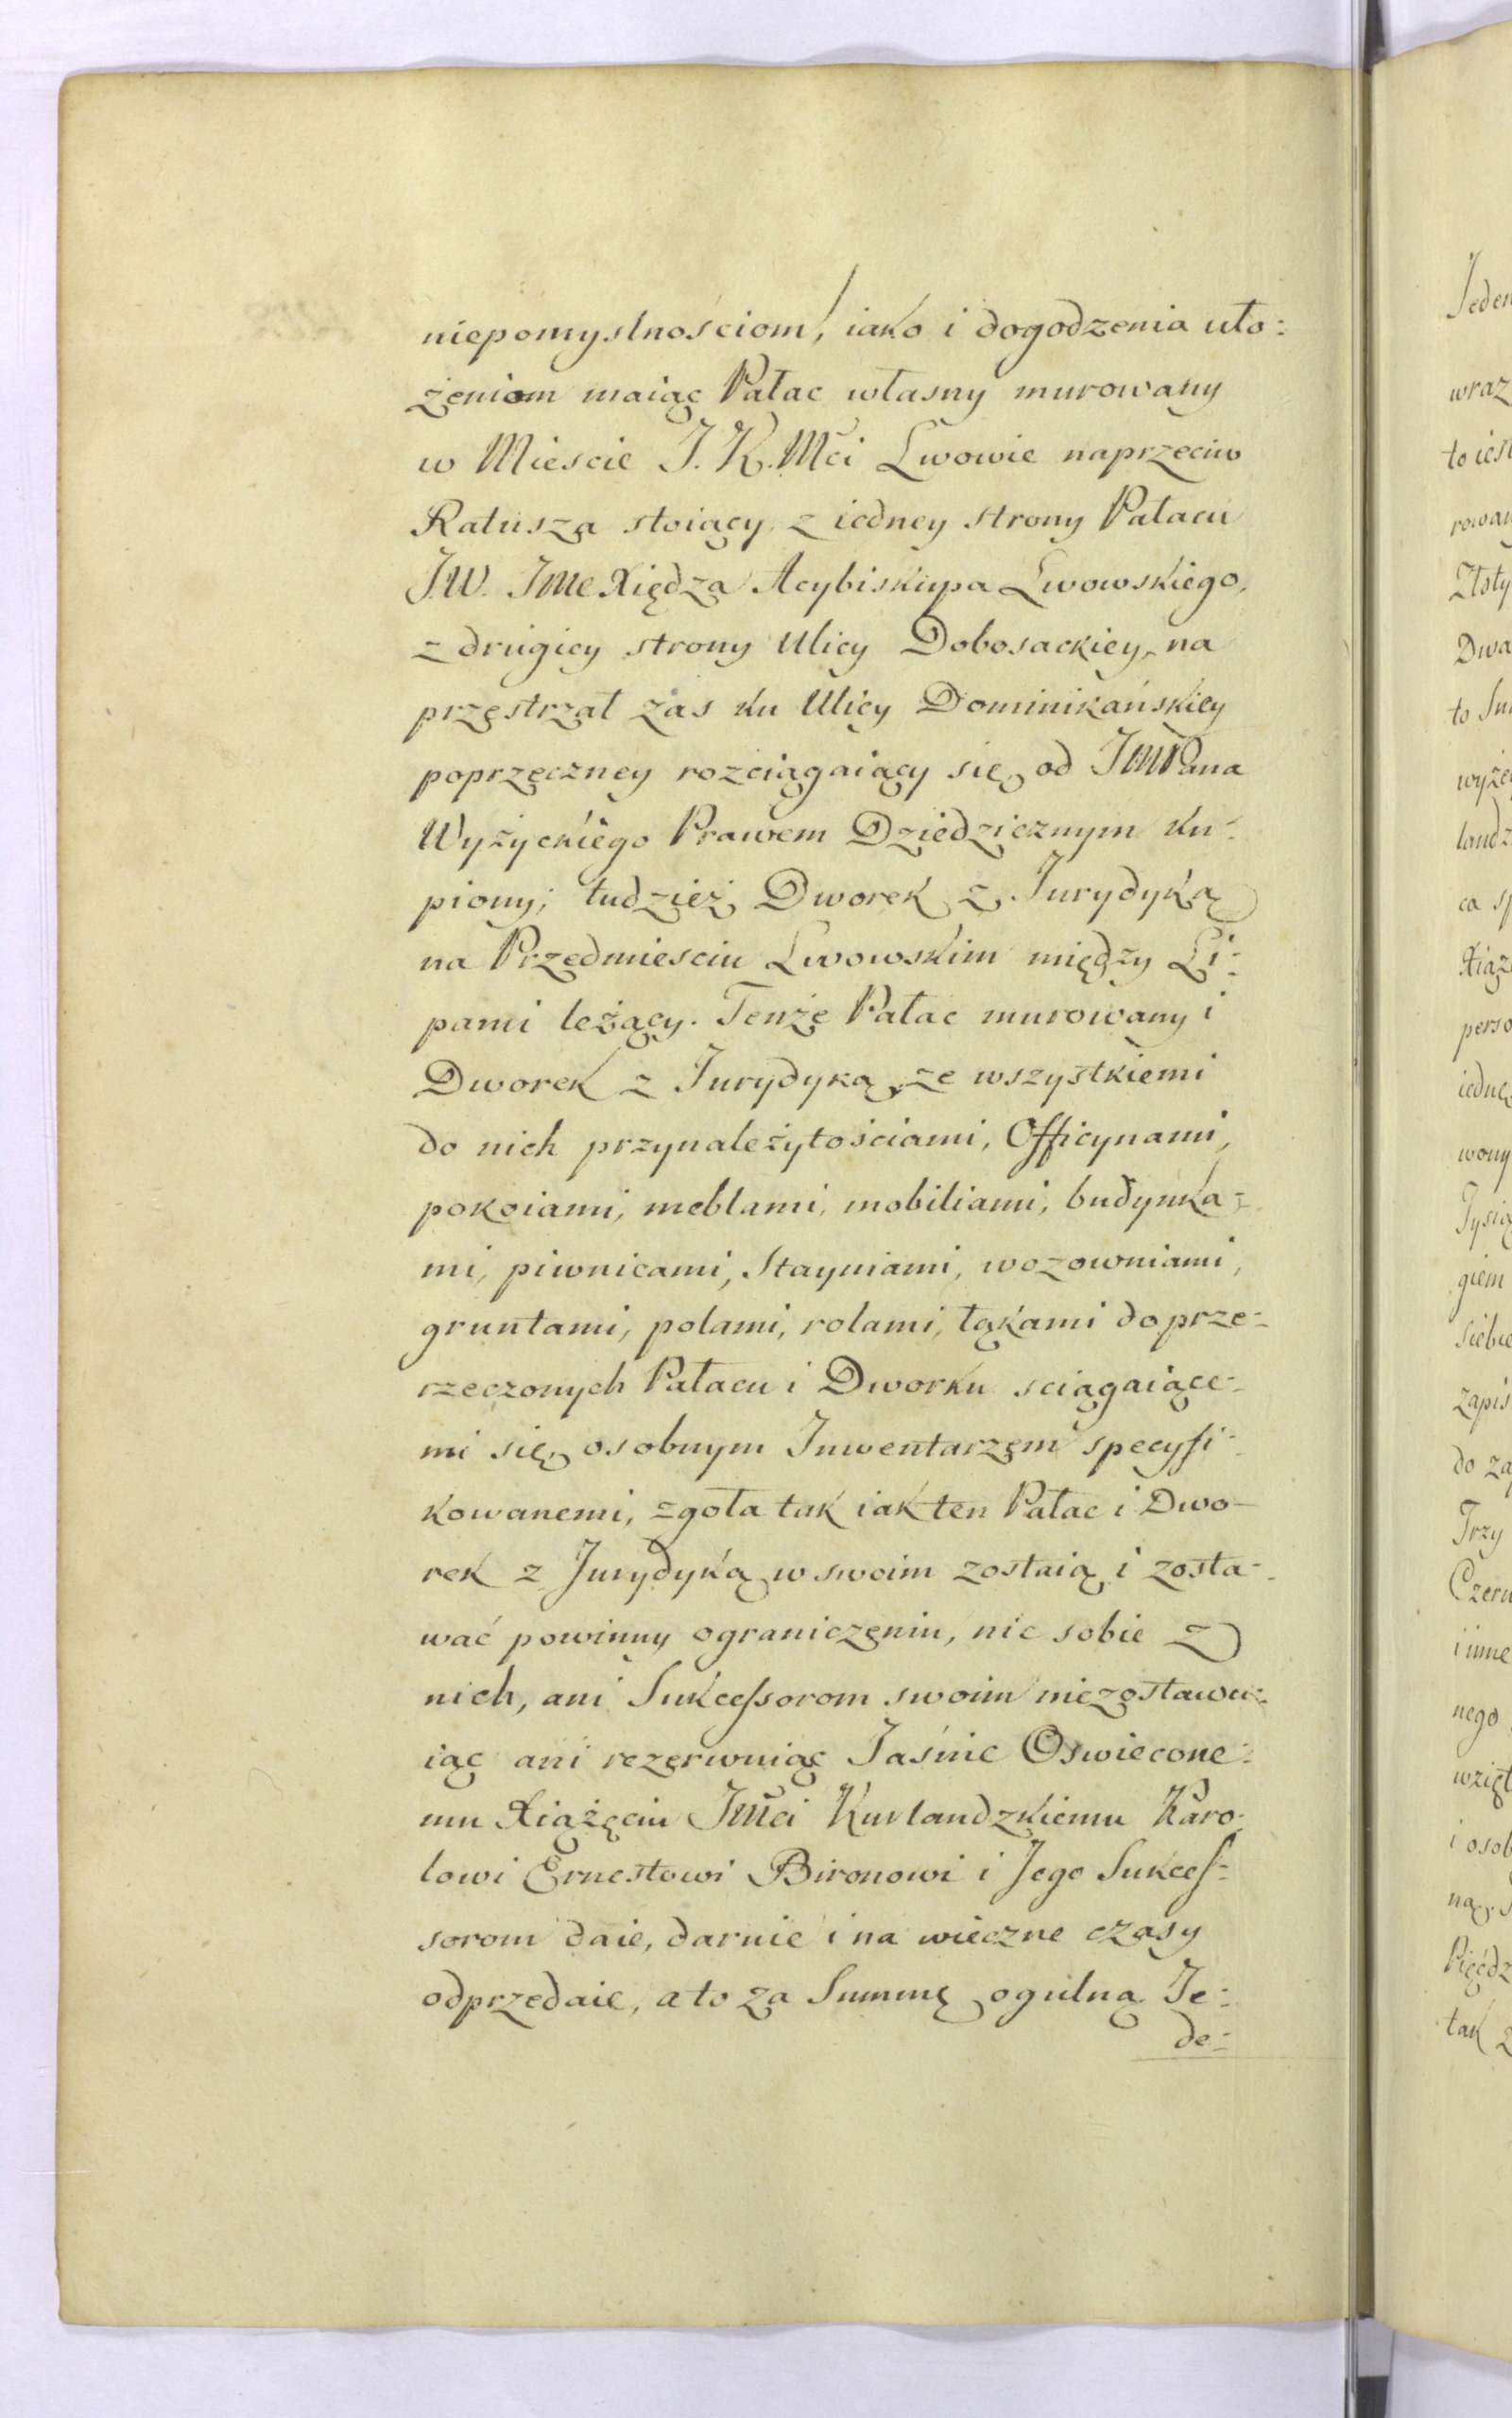 niepomyslnościom, iako i dogodzenia uło:
żeniom maiąc Pałac własny murowany
w Mieście J. K. Mći Lwowie naprzeciw
Ratusza stoiący z iedney strony Pałacu
J.W. Jmc Xiędza Acybiskupa Lwowskiego,
z drugiey strony Ulicy Dobosackiey, na
przestrzał zaś ku Ulicy Dominikańskiey
poprzeczney rozciągaiący się, od JmPana
Wyżyckiego Prawem Dziedzicznym ku-
piony; tudzież Dworek z Jurydyką
na Przedmiesciu Lwowskim między Li:
pami leżący. Tenże Pałac murowany i
Dworek z Jurydyką, ze wszystkiemi
do nich przynależytościami, Officynami,
pokoiami, meblami, mobiliami, budynka=
mi, piwnicami, Stayniami, wozowniami,
gruntami, polami, rolami, łąkami do prze=
rzeczonych Pałacu i Dworku sciągaiące-
mi się, osobnym Inwentarzem specyfi-
kowanemi, zgoła tak iak ten Pałac i Dwo-
rek z Jurydyką w swoim zostaią i zosta-
wać powinny ograniczeniu, nic sobie z
nich, ani Sukcessorom swoim niezostawu=
iąc ani rezerwuiąc Jaśnie Oświecone:
mu Xiążęciu Jmći Kurlandzkiemu Karo:
lowi Ernestowi Bironowi i Jego Sukces-
sorom daie, daruie i na wieczne czasy
odprzedaie, a to za Summę ogulną Je:
de:
Jeden
wraz
to iest
rowan
Złoty
Dwa
to Su
wyże
landz
ca sp
Xiąż
perso
iedne
wony
Tysią
giem
Siebie
zapis
do za
Trzy
Czerw
i inne
nego
wzięt
i osob
ną,
Pięćdz
tak z